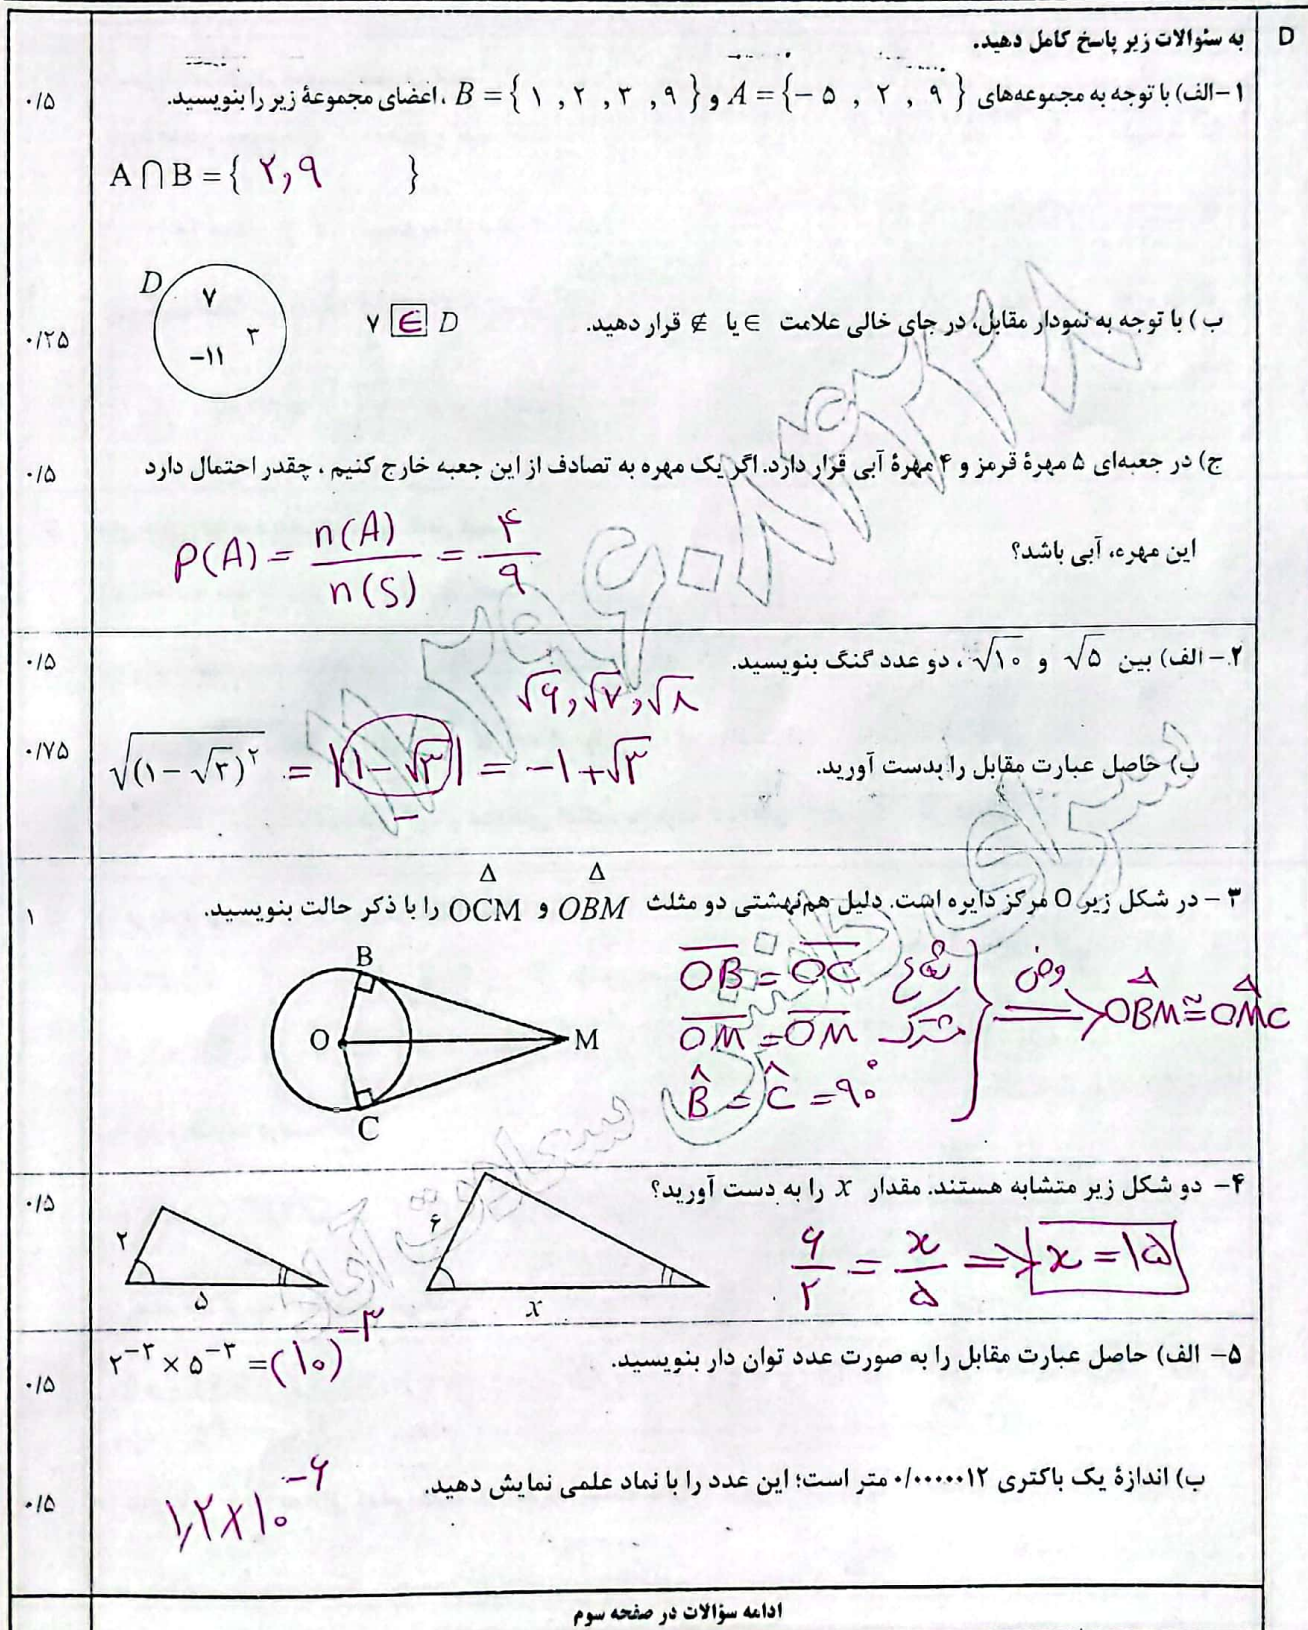 D به سئوالات زیر پاسخ کامل دهید.
۱-الف) با توجه به مجموعه‌های A = {-۵ , ۲ , ۹} و B = {۱ , ۲ , ۳ , ۹} ، اعضای مجموعۀ زیر را بنویسید. ۰/۵
A ∩ B = { ۲,۹ }
ب ) با توجه به نمودار مقابل، در جای خالی علامت ∈ یا ∉ قرار دهید. ۷ ∈ D ۰/۲۵
D ۷ ۳ -۱۱
ج) در جعبه‌ای ۵ مهرۀ قرمز و ۴ مهرۀ آبی قرار دارد. اگر یک مهره به تصادف از این جعبه خارج کنیم ، چقدر احتمال دارد ۰/۵
این مهره، آبی باشد؟
P(A) = n(A)/n(S) = ۴/۹
۲- الف) بین √۵ و √۱۰ ، دو عدد گنگ بنویسید. ۰/۵
√۶,√۷,√۸
ب) حاصل عبارت مقابل را بدست آورید. ۰/۷۵
√(۱-√۳)^۲ = |۱-√۳| = -۱+√۳
-
۳ - در شکل زیر O مرکز دایره است. دلیل هم‌نهشتی دو مثلث OBM و OCM را با ذکر حالت بنویسید. ۱
B O M C
OB = OC شعاع
OM = OM مشترک
B̂ = Ĉ = ۹۰°
وض ⇒ OBM ≅ OMC
۴- دو شکل زیر متشابه هستند. مقدار x را به دست آورید؟ ۰/۵
۲ ۵ ۶ x
۶/۲ = x/۵ ⇒ x = ۱۵
۵- الف) حاصل عبارت مقابل را به صورت عدد توان دار بنویسید. ۰/۵
۲^-۳ × ۵^-۳ = (۱۰)^-۳
ب) اندازۀ یک باکتری ۰/۰۰۰۰۰۱۲ متر است؛ این عدد را با نماد علمی نمایش دهید. ۰/۵
۱,۲×۱۰^-۶
ادامه سؤالات در صفحه سوم